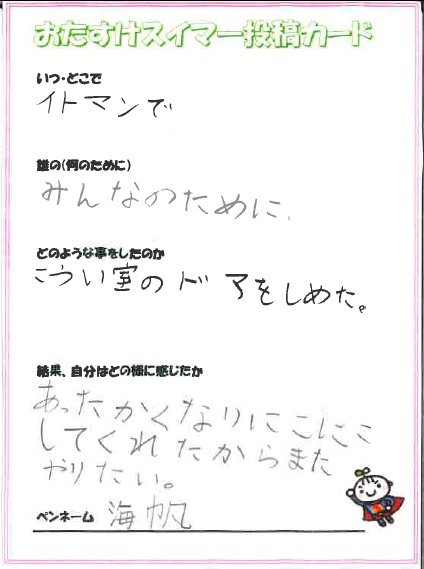 おたすけスイマー投稿カード
いつ・どこで
イトマンで
誰の(何のために)
みんなのために、
どのような事をしたのか
こうい室のドアをしめた。
結果、自分はどの様に感じたか
あったかくなりにこにこ
してくれたからまた
やりたい。
ペンネーム 海帆